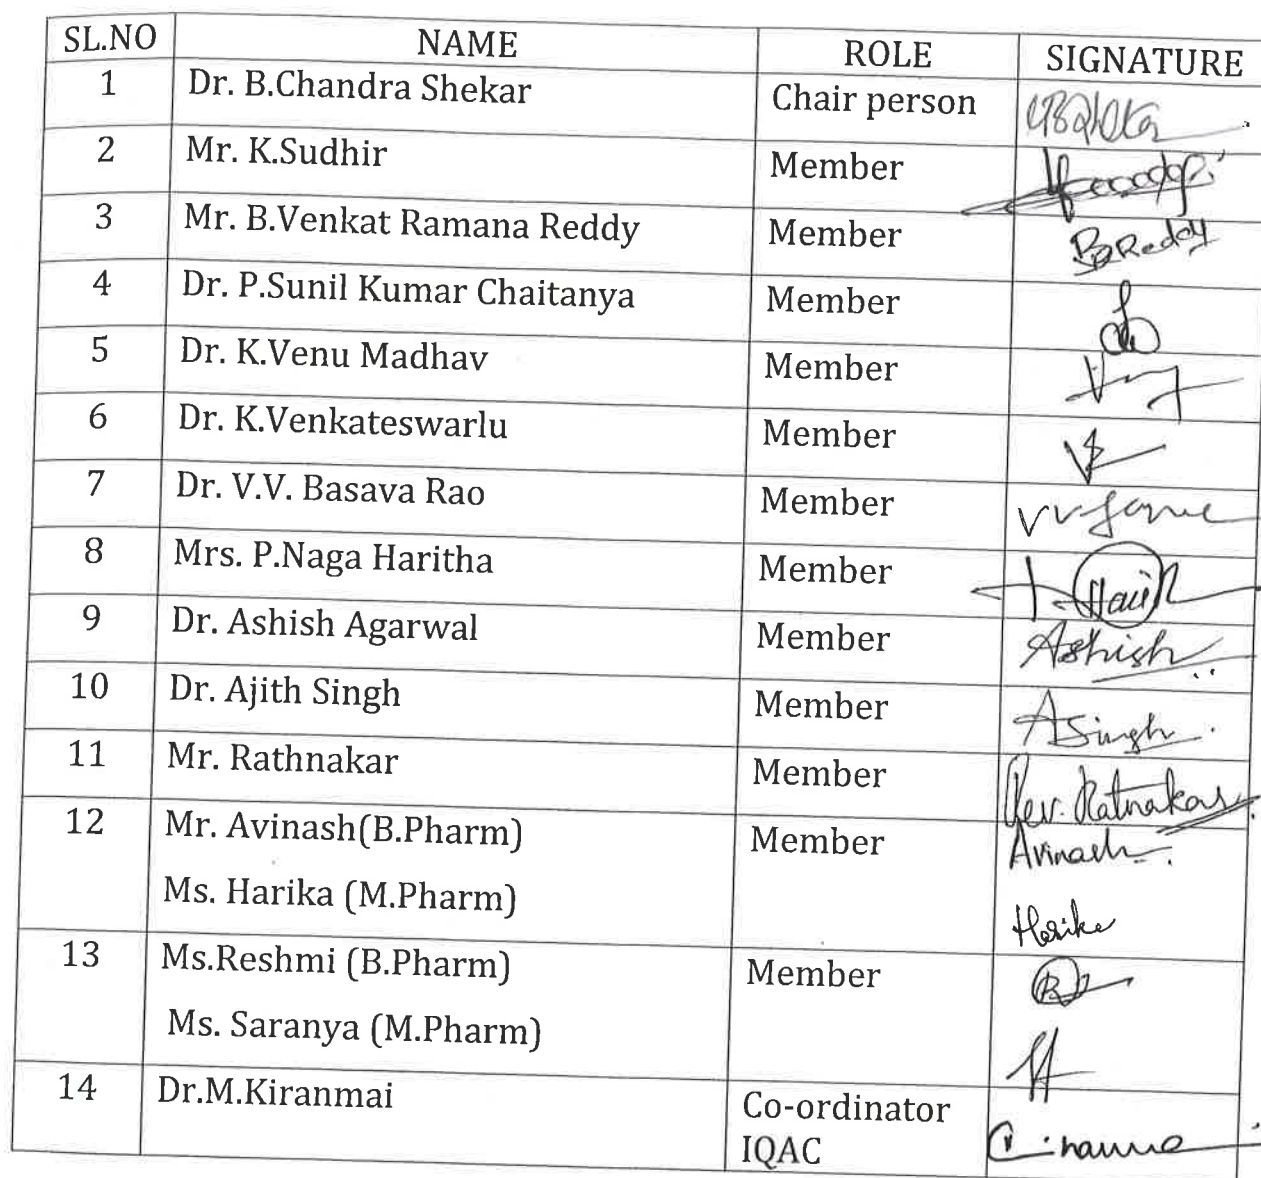 SL.NO NAME ROLE SIGNATURE
1 Dr. B.Chandra Shekar Chair person
2 Mr. K.Sudhir Member
3 Mr. B.Venkat Ramana Reddy Member BReddy
4 Dr. P.Sunil Kumar Chaitanya Member
5 Dr. K.Venu Madhav Member
6 Dr. K.Venkateswarlu Member
7 Dr. V.V. Basava Rao Member
8 Mrs. P.Naga Haritha Member
9 Dr. Ashish Agarwal Member Ashish
10 Dr. Ajith Singh Member ASingh
11 Mr. Rathnakar Member Rev. Ratnakar
12 Mr. Avinash(B.Pharm) Member Avinash
Ms. Harika (M.Pharm) Harika
13 Ms.Reshmi (B.Pharm) Member
Ms. Saranya (M.Pharm)
14 Dr.M.Kiranmai Co-ordinator
IQAC